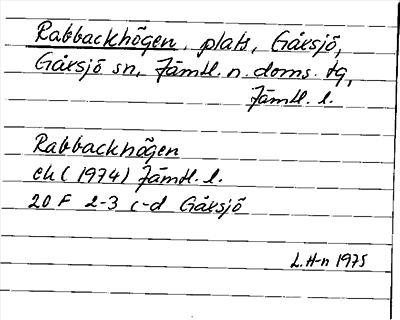 Rabbackhögen, plats, Gåxsjö,
Gåxsjö sn, Jämtl. n. doms. tg,
Jämtl. l.
Rabbackhögen
ek (1974) Jämtl. l.
20 F 2-3 c-d Gåxsjö
L. H-n 1975